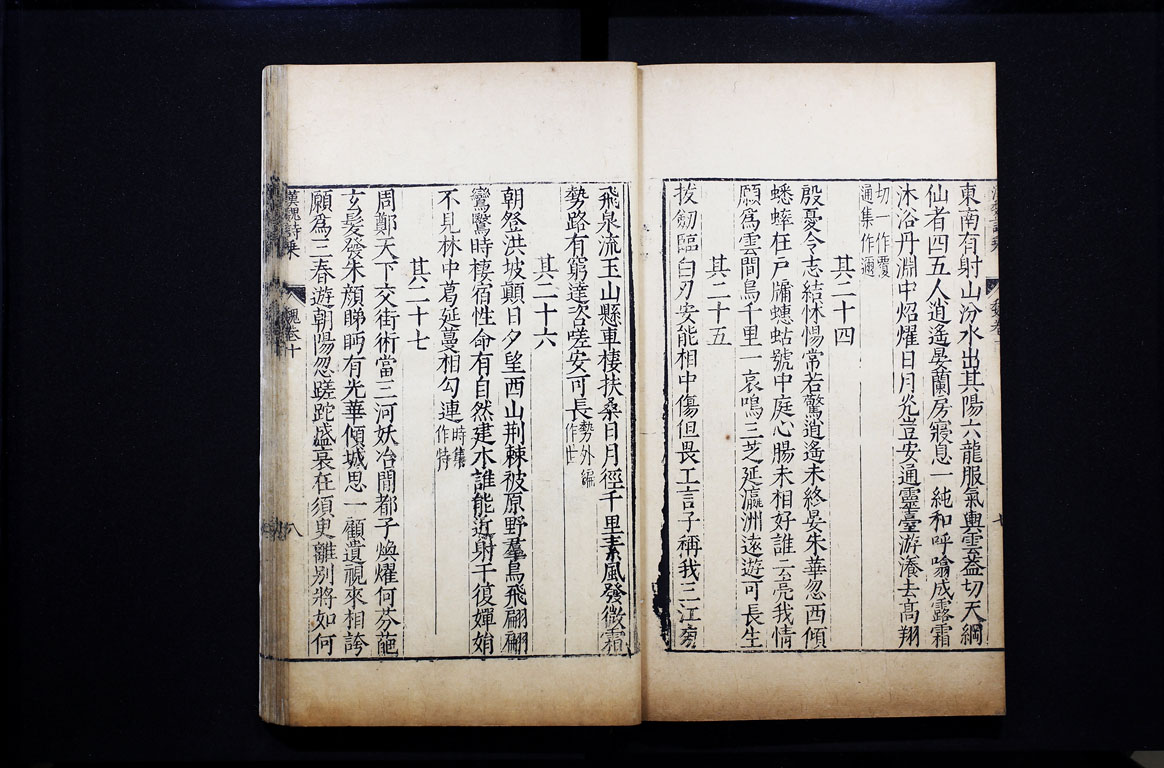 東南有射山汾水出其陽六龍服氣輿雲蓋切天綱
仙者四五人逍遙晏蘭房寢息一純和呼噏成露霜
沐浴丹淵中炤燿日月光豈安通靈臺游瀁去高翔
切一作覆
通集作邇
其二十四
殷憂令志結怵惕常若驚逍遙未終晏朱華忽西傾
蟋蟀在戶牖蟪蛄號中庭心腸未相好誰云亮我情
願爲雲間鳥千里一哀鳴三芝延瀛洲遠遊可長生
其二十五
拔劒臨白刃安能相中傷但畏工言子稱我三江旁
飛泉流玉山懸車棲扶桑日月徑千里素風發微霜
勢路有窮達咨嗟安可長勢外編作世
其二十六
朝登洪坡顛日夕望西山荆棘被原野羣鳥飛翩翩
鸞鷖時棲宿性命有自然建木誰能近射干復嬋娟
不見林中葛延蔓相勾連時集作特
其二十七
周鄭天下交街術當三河妖冶閒都子煥燿何芬葩
玄髮發朱顏睇眄有光華傾城思一顧遺視來相誇
願爲三春遊朝陽忽蹉跎盛衰在須臾離別將如何
漢魏詩乘 魏卷十 八